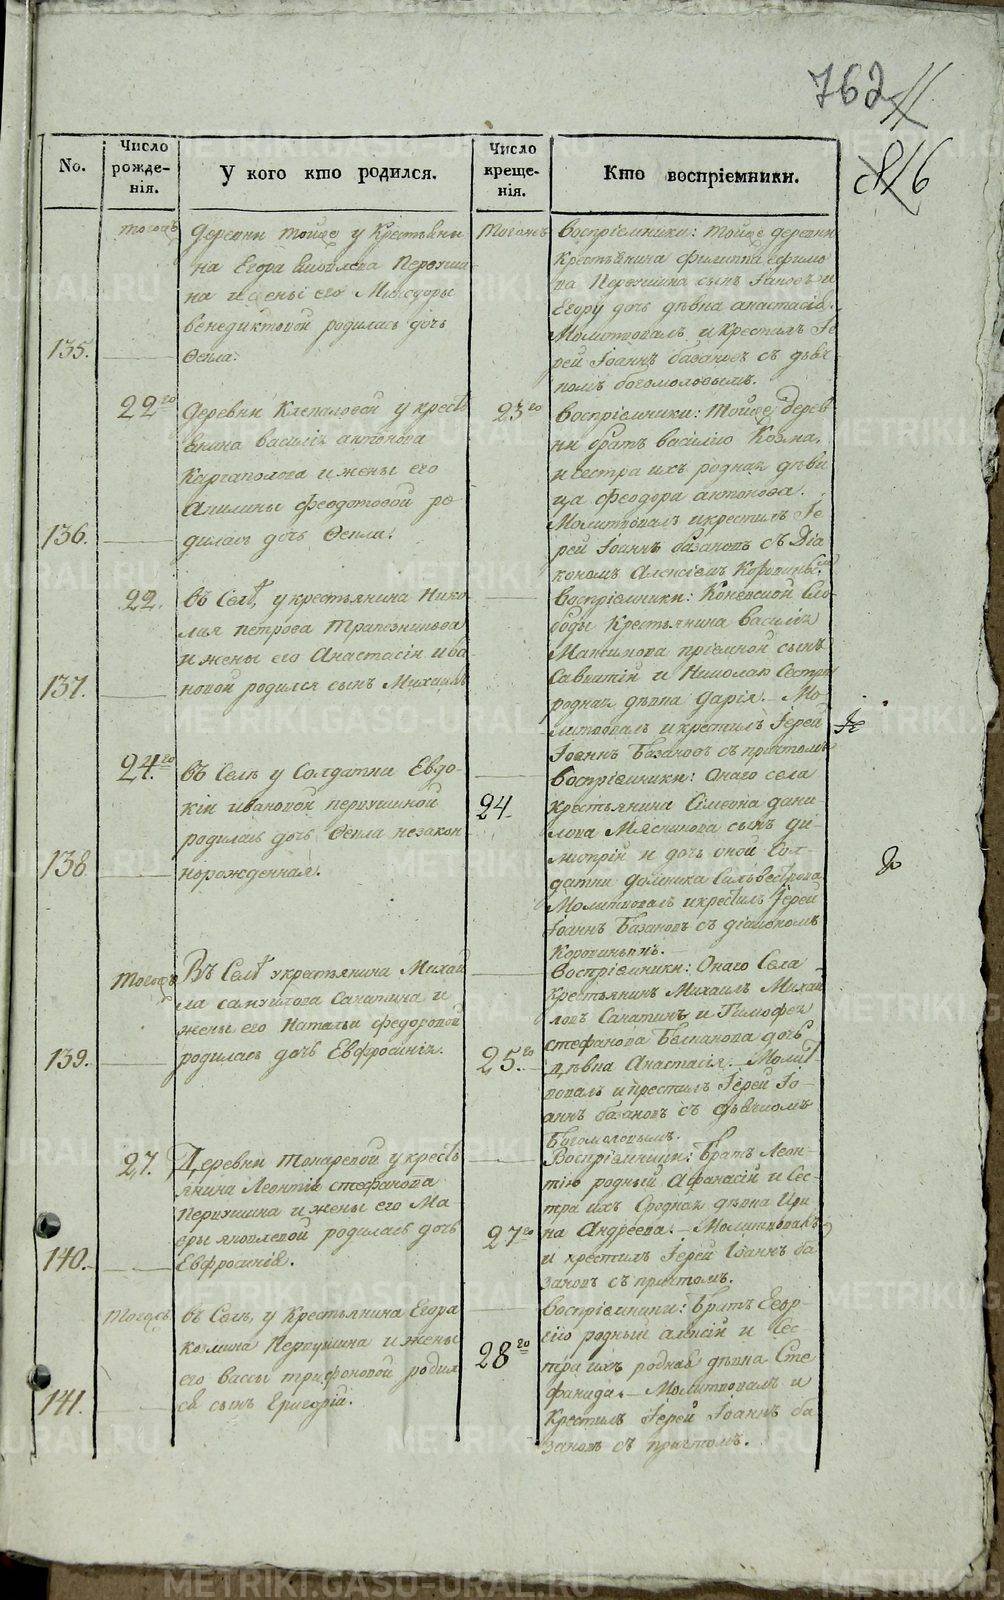 762
816
No.
Число рожде-нія.
У кого кто родился.
Число креще-нія.
Кто воспріемники.
135.
тогожъ
Деревни тойже у крестьяни
на Егора Перхуши
на и жены его
венедиктовой родилась дочь
Ѳекла.
Тогожъ
Воспріемники: тойже деревни
крестьянина филиппа ефимо
ва Перхушина сынъ и
Егору дочь дѣвка анастасія.
Молитвовалъ и крестилъ Іе
рей Іоаннъ базановъ съ дьяч
комъ богомоловымъ.
136.
22го
Деревни Клепаловой у кресть
янина василія антонова
Каргаполова и жены его
Акилины феодотовой ро
дилась дочь Ѳекла.
23го
Воспріемники: Тойже дерев
ни братъ василію Козма,
и сестра ихъ родная дѣви
ца феодора антонова.
Молитвовалъ и крестилъ Іе
рей Іоаннъ базановъ съ Діа
кономъ Алексіемъ Коровинымъ
137.
22.
въ Селѣ, у крестьянина Нико
лая петрова Трапезникова
и жены его Анастасіи ива
новой родился сынъ Михаилъ
Воспріемники: Коневской Сло
боды Крестьянина василія
Максимова пріемной сынъ
Савватій и Николаю Сестра
родная дѣвка Дарія. Мо
литвовалъ и крестилъ Іерей
Іоаннъ Базановъ съ причтомъ
138
24го
въ Селѣ у Солдатки Евдо-
кіи ивановой перхушиной
родилась дочь Ѳекла незакон
норожденная.
24
Воспріемники: Онаго села
крестьянина Сімеона дани
лова Мясникова сынъ ди-
митрій и дочь оной Сол-
датки домника Сильвестрова
Молитвовалъ и крестилъ Іерей
Іоаннъ Базановъ съ діакономъ
Коровинымъ.
139.
Тогожъ
Въ Селѣ у крестьянина Михай
ла самуилова Санатина и
жены его Натальи федоровой
родилась дочь Евфросинія.
25го
Воспріемники: Онаго Села
крестьянинъ Михаилъ Михай
ловъ Санатинъ и Тимофея
стефанова дочь
дѣвка Анастасія. Молит
вовалъ и крестилъ Іерей Іо-
аннъ базановъ съ дьячкомъ
Богомоловымъ.
140.
27.
Деревни Токаревой у кресть
янина Леонтія стефанова
Перхушина и жены его Ма
ріи яковлевой родилась дочь
Евфросинія.
27го
Воспріемники: братъ Леон-
тію родный Афанасій и Сес-
тра ихъ Сродная дѣвка Ири
на Андреева. Молитвовалъ
и крестилъ Іерей Іоаннъ ба
зановъ съ причтомъ.
141.
Тогожъ
въ Селѣ, у Крестьянина Егора
козмина Перхушина и жены
его вассы трифоновой родил
ся сынъ Григорій.
28го
Воспріемники: братъ Егор-
ію родный алексій и Сес-
тра ихъ родная дѣвка Сте
фанида. Молитвовалъ и
Крестилъ Іерей Іоаннъ ба
зановъ съ причтомъ.
METRIKI.GASO-URAL.RU